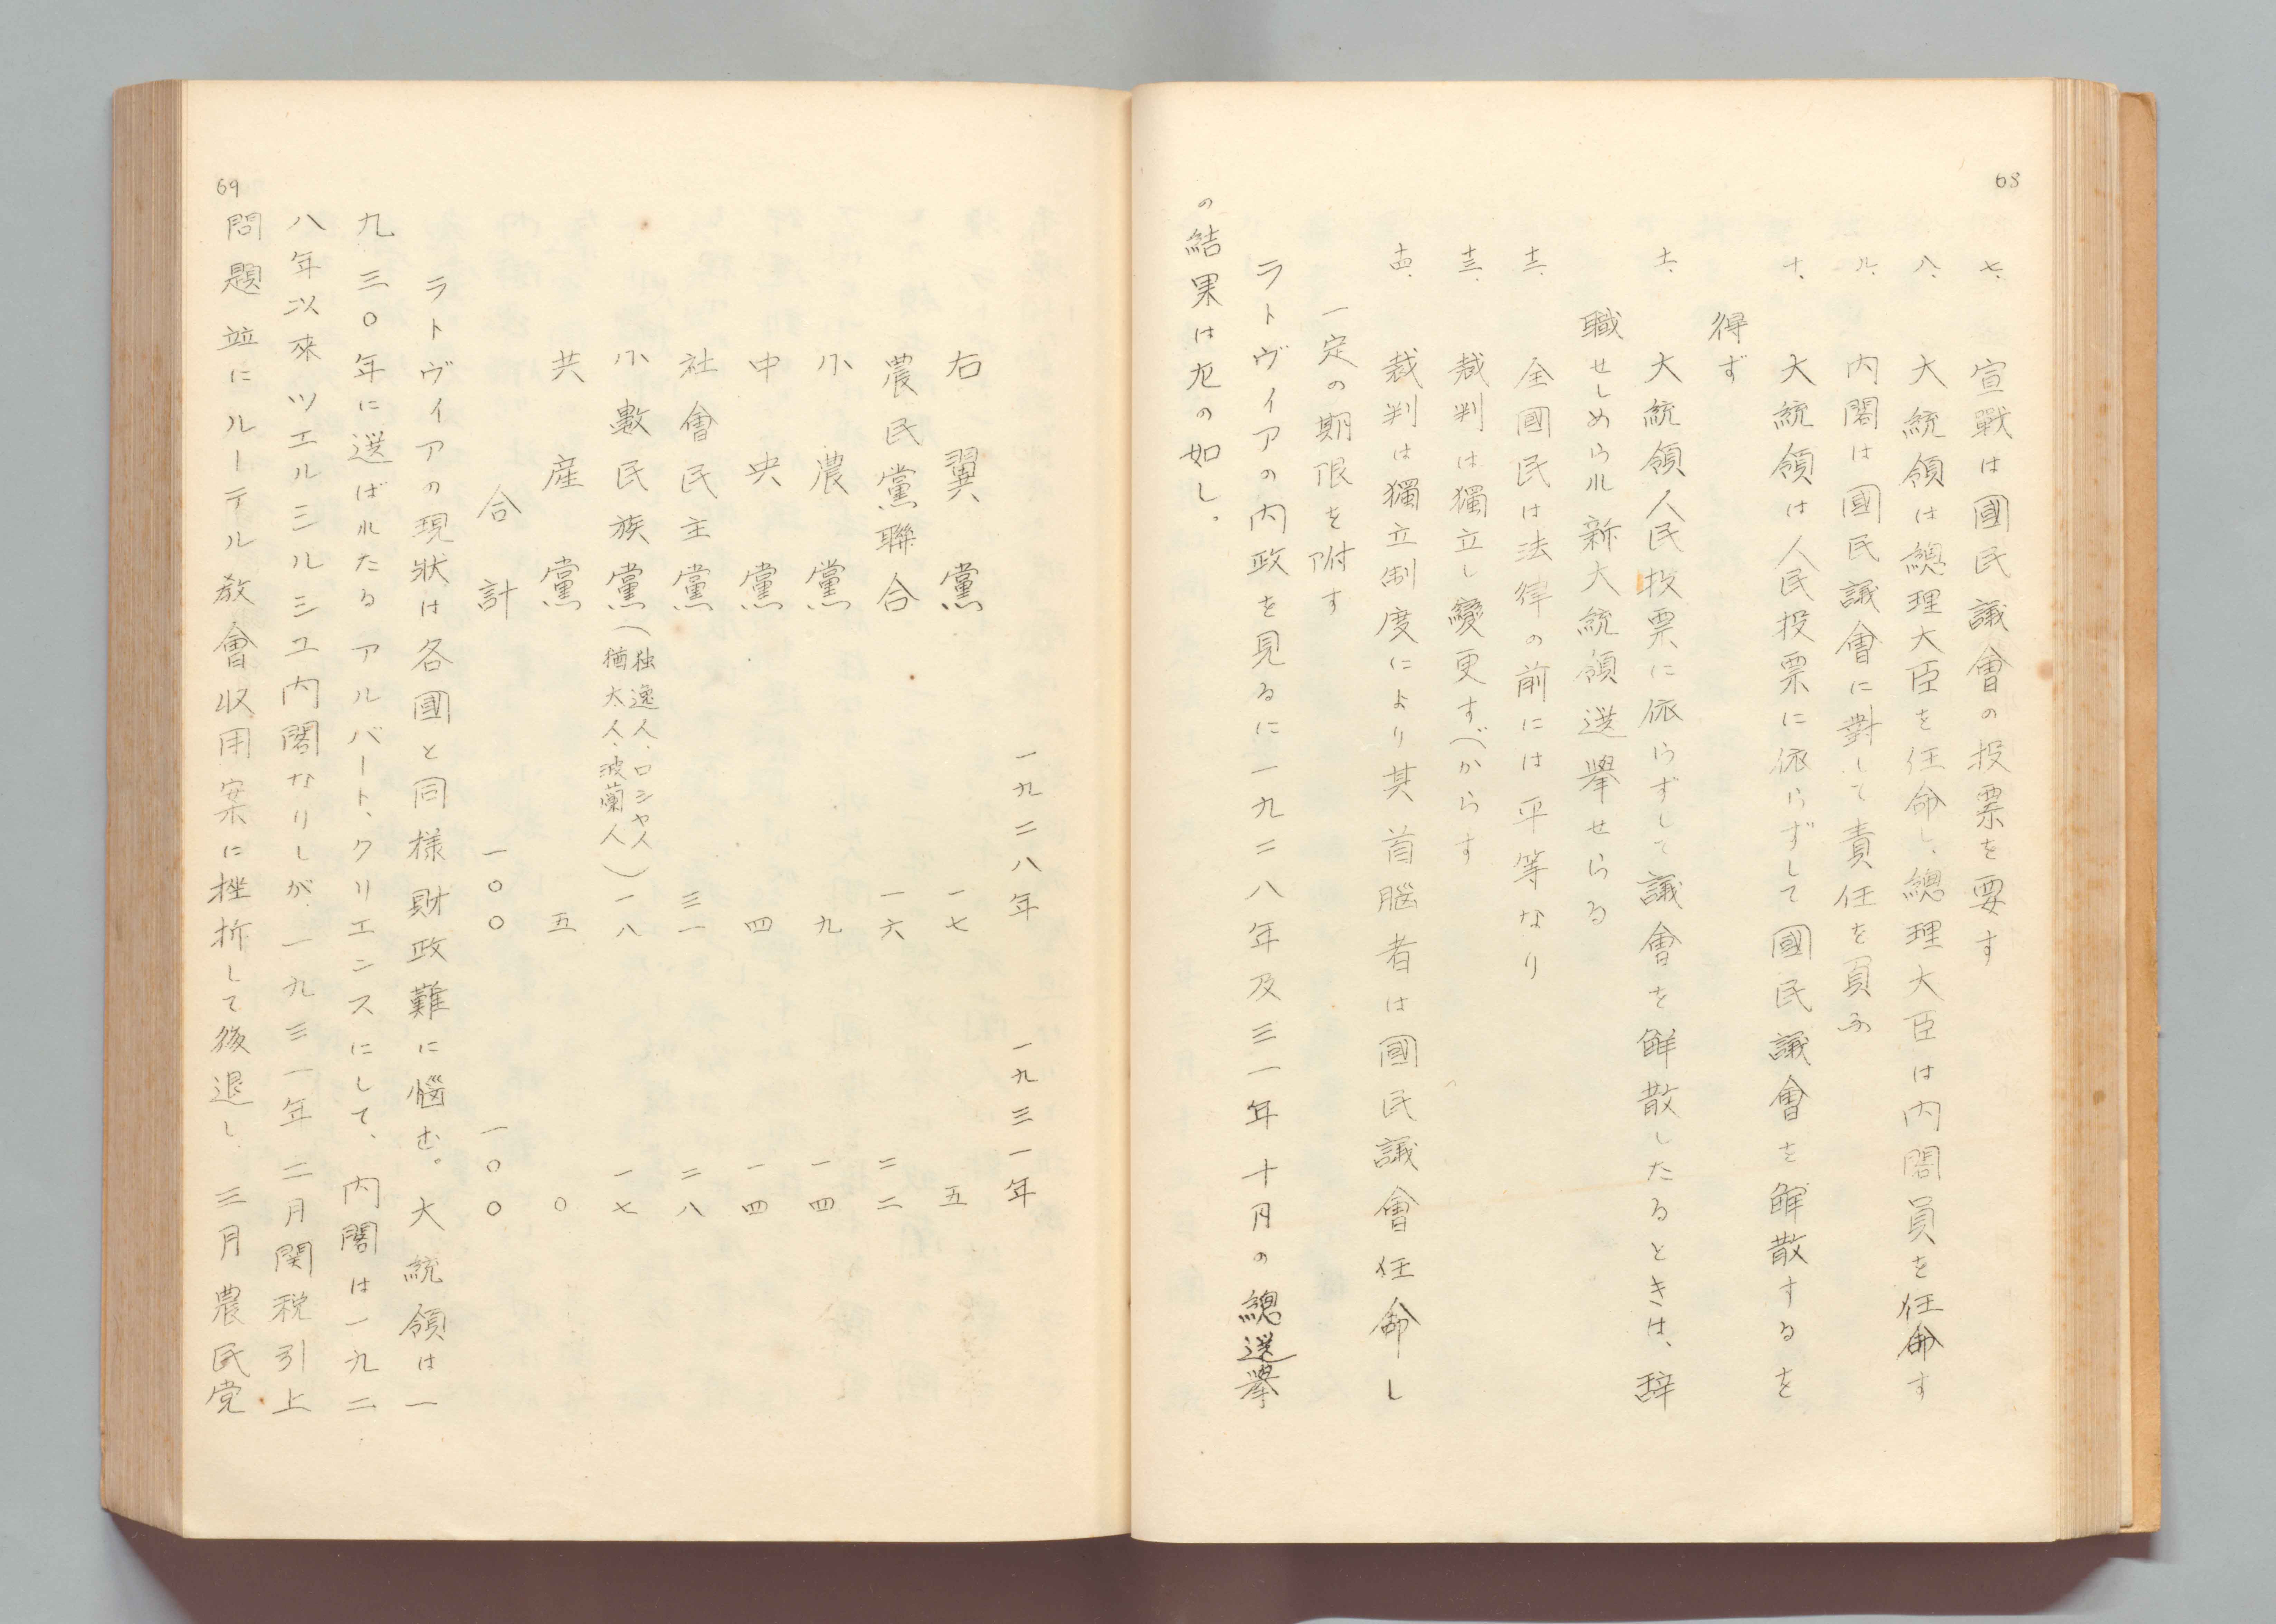 68
七、宣戰は國民議會の投票を要す
八、大統領は總理大臣を任命し、總理大臣は内閣員を任命す
九、内閣は國民議會に對して責任を負ふ
十、大統領は人民投票に依らずして國民議會を解散するを
得ず
十一、大統領人民投票に依らずして議會を解散したるときは、辞
職せしめられ新大統領選擧せらる
十二、全國民は法律の前には平等なり
十三、裁判は獨立し變更すべからす
十四、裁判は獨立制度により其首脳者は國民議會任命し
一定の期限を附す
ラトヴィアの内政を見るに一九二八年及三一年十月の總選擧
の結果は左の如し。
一九二八年 一九三一年
右翼黨 一七 五
農民黨聯合 一六 二二
小農黨 九 一四
中央黨 四 一四
社會民主黨 三一 二八
小數民族黨(独逸人、ロシヤ人 猶太人、波蘭人) 一八 一七
共産黨 五 〇
合計 一〇〇 一〇〇
ラトヴイアの現狀は各國と同様財政難に惱む。大統領は一
九三〇年に選ばれたるアルバート、クリエンスにして、内閣は一九二
八年以來ツエルミルミユ内閣なりしが、一九三一年二月関税引上
問題並にルーテル教會収用案に挫折して後退し、三月農民党
69